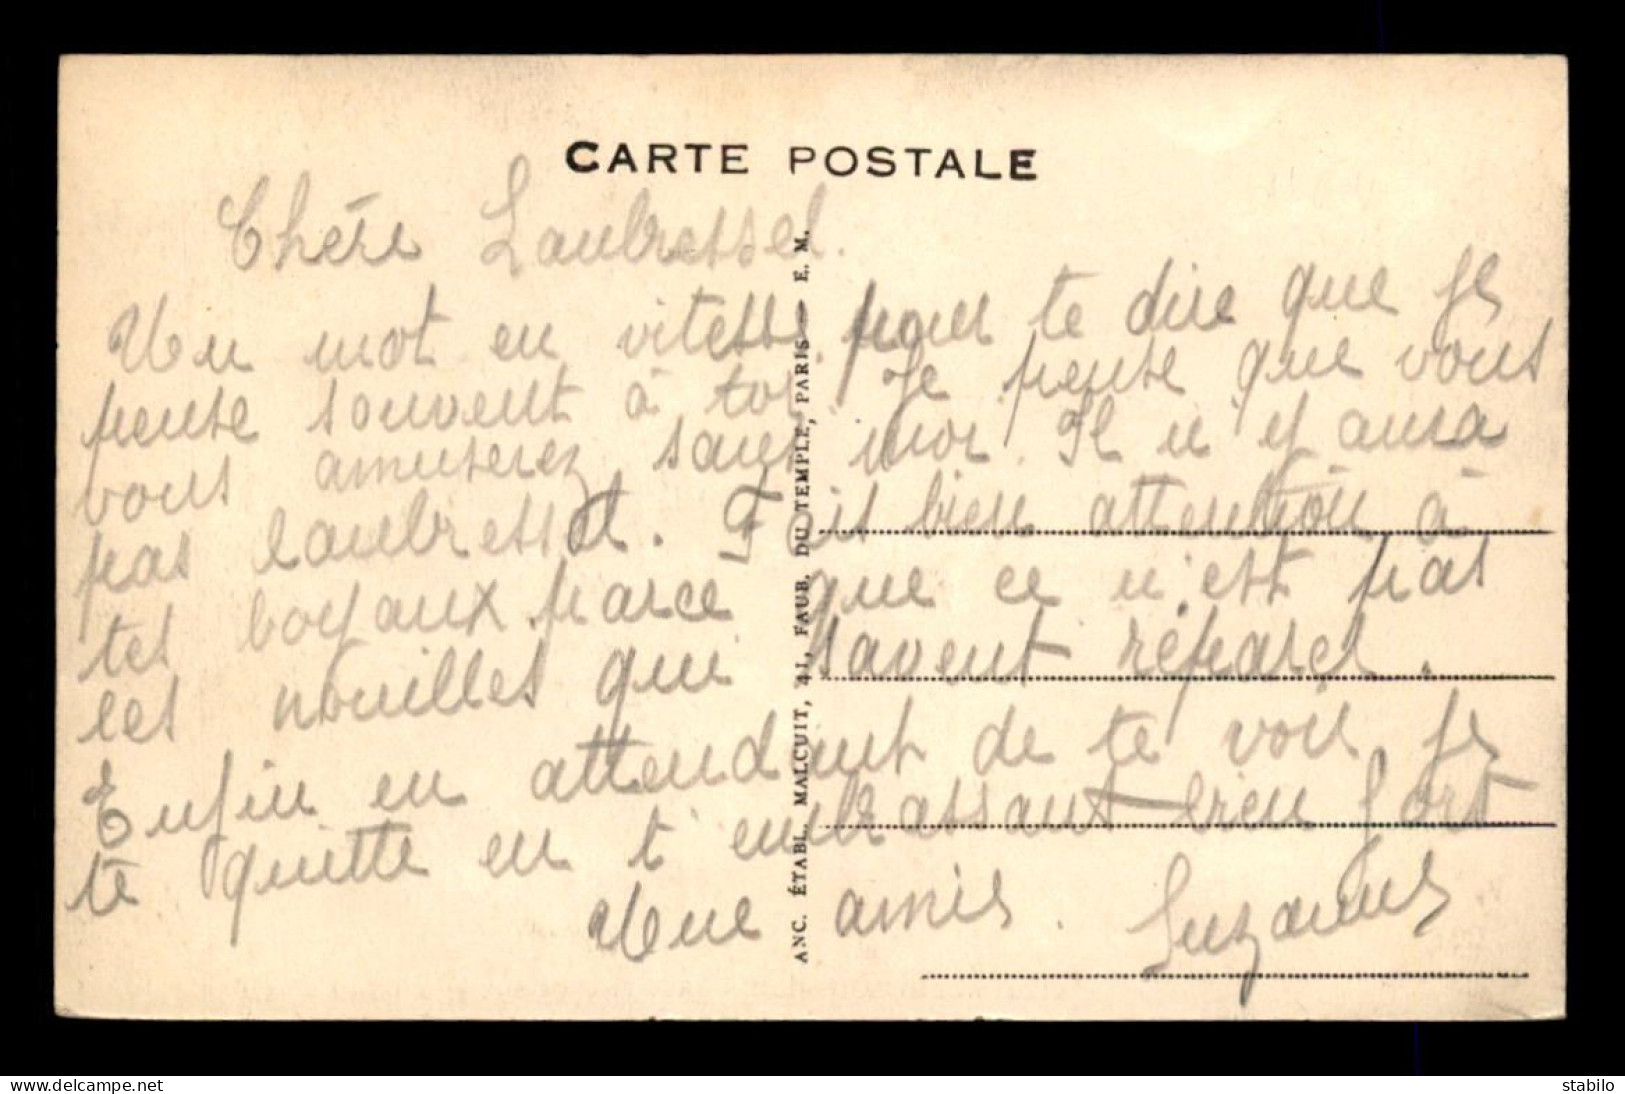 CARTE POSTALE
Chère Laubressel.
Un mot en vitesse pour te dire que je
pense souvent à toi. Je pense que vous
vous amuserez sans moi. Il n'y aura
pas laubressel. Fais bien attention à
tes boyaux parce que ce n'est pas
les nouilles qui savent réparer.
Enfin en attendant de te voir je
te quitte en t'embrassant bien fort
Une amie. Suzanne
ANC. ÉTABL. MALCUIT, 41, FAUB. DU TEMPLE, PARIS — E. M.
delcampe.net
stabilo